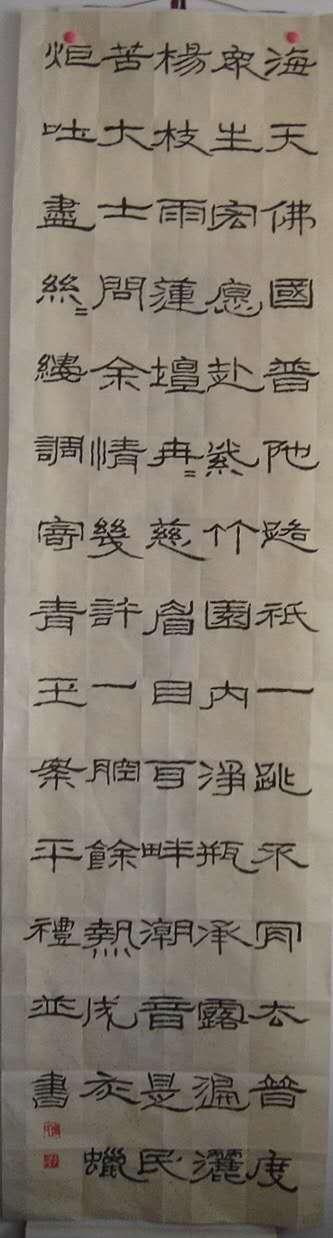 海天佛國普陀路祇一跳同去普度
眾生宏愿赴紫竹園內淨瓶承露遍灑
楊枝雨蓮壇冉〻慈眉目耳畔潮音是民
苦大士問余情幾許一腔餘熱成灰蠟
炬吐盡絲〻縷調寄青玉案平禮並書